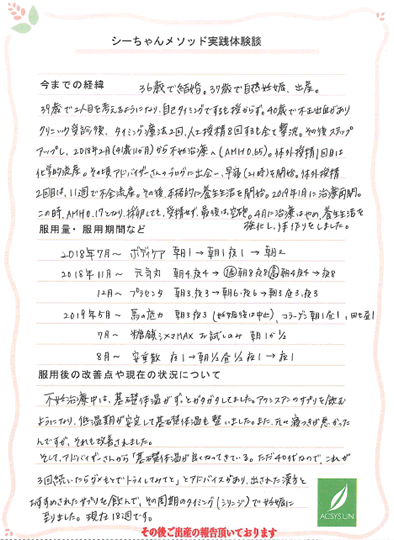 シーちゃんメソッド実践体験談
今までの経緯
36歳で結婚。37歳で自然妊娠、出産。
39歳で2人目を考えるようになり、自己タイミングでするも授からず。40歳で不正出血があり
クリニック受診後、タイミング療法2回、人工授精8回するも全て撃沈。その後ステップ
アップし、2018年2月(41歳10か月)から不妊治療へ(AMH0.65)。体外授精1回目は
化学的流産。その頃アドバイザーさんのブログに出会い、早寝(21時)を開始。体外授精
2回目は、11週で不全流産。その後、本格的に養生生活を開始。2019年1月に治療再開。
この時、AMH0.17となり、採卵しても、受精せず、最後は空砲。4月に治療はやめ、養生生活を
強化し、手作りをしました。
服用量・服用期間など
2018年7月～ ボディケア 朝1→朝1夜1→朝2
2018年11月～ 元気丸 朝4夜4→ 朝8夜8 朝4夜4→夜8
12月～ プラセンタ 朝3、夜3→朝6・夜6→朝3昼3、夜3
2019年5月～ 馬の胎力 朝3夜3(妊娠後は中止)、コラーゲン朝1昼1
7月～ 糖鎖 MAX お試しのみ 朝1
8月～ 安寿数 夜1→朝½昼½夜1→夜1
服用後の改善点や現在の状況について
不妊治療中は、基礎体温がずっとガタガタしてました。アクシスアンのサプリを飲む
ようになり、低温期が安定して基礎体温も整いました。また、元々寝つきが悪かった
んですが、それも改善されました。
そして、アドバイザーさんから「基礎体温が良くなってきている。ただ40代なので、これが
3回続いたらダメもとでトライしてみて」とアドバイスがあり、出された漢方と
おすすめされたサプリを飲んで、その周期のタイミング(シリンジ)で妊娠に
至りました。現在18週です。
ACSYSLIN
その後ご出産の報告頂いております